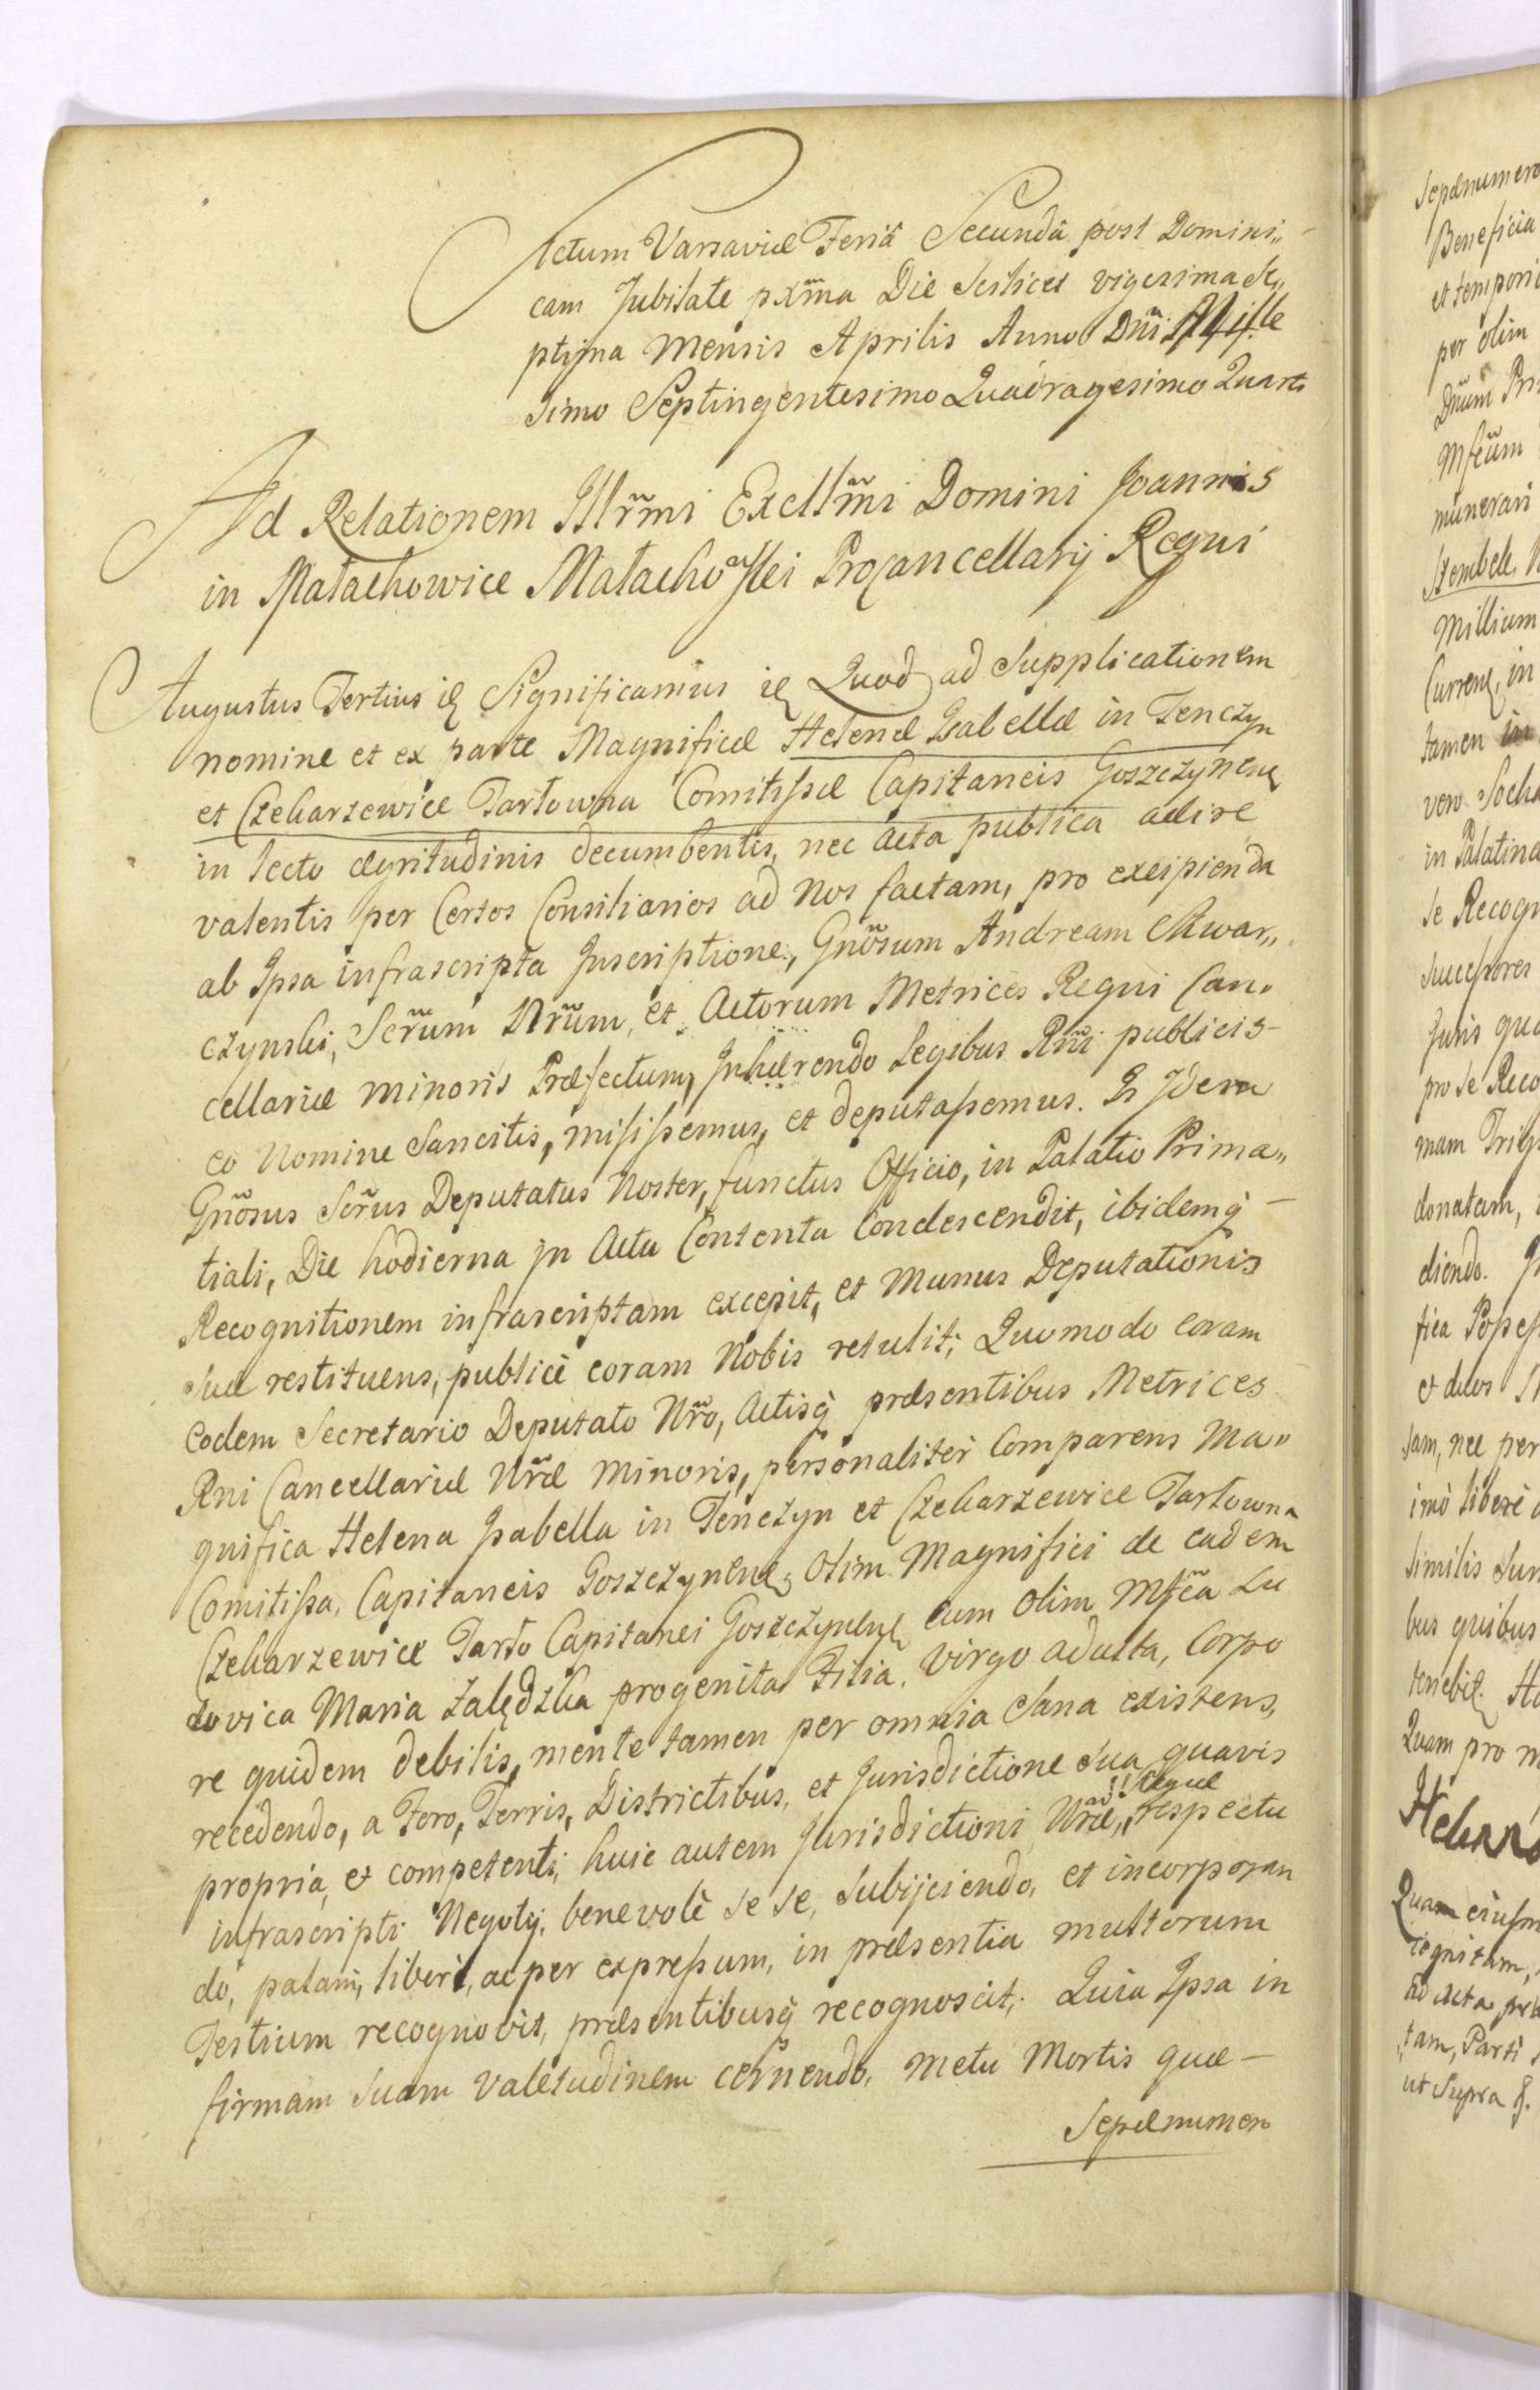 Actum Varsaviæ Feriâ Secundâ post Domini„
cam Jubilate pxm̃a Die Scilicet vigesima Se„
ptima Mensis Aprilis Anno Dñi Mille
simo Septingentesimo Quadragesimo Quarto
Ad Relationem Illr̃mi Excllm̃i Domini Joannis
in Małachowice Małachowski Procancellarij Regni
Augustus Tertius &c Significamus &c Quod ad Supplicationem
nomine et ex parte Magnificæ Helenæ Isabellæ in Tenczyn
et Czekarzewice Tarłowna Comitissæ Capitaneis Goszczynens
in lecto ægritudinis decumbentis, nec Acta publica adire
valentis per Certos Consiliarios ad Nos factam, pro excipienda
ab Ipsa infrascripta Inscriptione, Gnõsum Andream Ckwar„
czynski, Scr̃um Nr̃um, et Actorum Metrices Regni Can„
cellariæ minoris Præfectum, Inhærendo Legibus Rñi publicis
eo Nomine Sancitis, misissemus, et deputassemus. Is Idem
Gnõsus Scr̃us Deputatus Noster, functus Officio, in Palatio Prima„
tiali, Die hodierna in Actu Contenta Condescendit, ibidemq̃
Recognitionem infrascriptam excepit, et Munus Deputationis
suæ restituens, publicè coram Nobis retulit; Quomodo Coram
Eodem Secretario Deputato Nr̃o, Actisq̃ præsentibus Metrices
Rni Cancellariæ Nr̃æ Minoris, personaliter Comparens Ma„
gnifica Helena Isabella in Tenczyn et Czekarzewice Tarłowna
Comitissa, Capitaneis Goszczynens, Olim Magnifici de eadem
Czekarzewice Tarło Capitanei Goszczynens, cum Olim Mf̃ca Lu
dovica Maria Zalędzka progenita Filia, Virgo adulta, Corpo
re quidem debilis, mente tamen per omnia Sana existens,
recedendo, a Foro, Terris, Districtibus, et Jurisdictione Sua quavis
propria, et competenti, huic autem Jurisdictioni Nr̃æ, Regiæ respectu
infrascripti Negotij, benevolè se se, Subijciendo, et incorporan
do, palam, liberè, ac per expressum, in præsentia multorum
Testium recognovit, præsentibusq̃ recognoscit; Quia Ipsa in
firmam Suam Valetudinem cernendo, metu Mortis quæ –
Sepænumero
Sepænumero
Beneficia
et tempori
per olim
Dñum
Mfcũm
munerari
Szembek
Millium
Currens, in
tamen in
vero Socha
in Palatina
se Recogn
Successores
Juris
pro se Reco
mam
donatam,
diendo.
fica Posses
et
sam, nec per
imò liberè
Similis
bus quibus
tenebit.
Quam pro
Helena
Quam
cognitam,
Ad Acta
tam, Parti
ut Supra